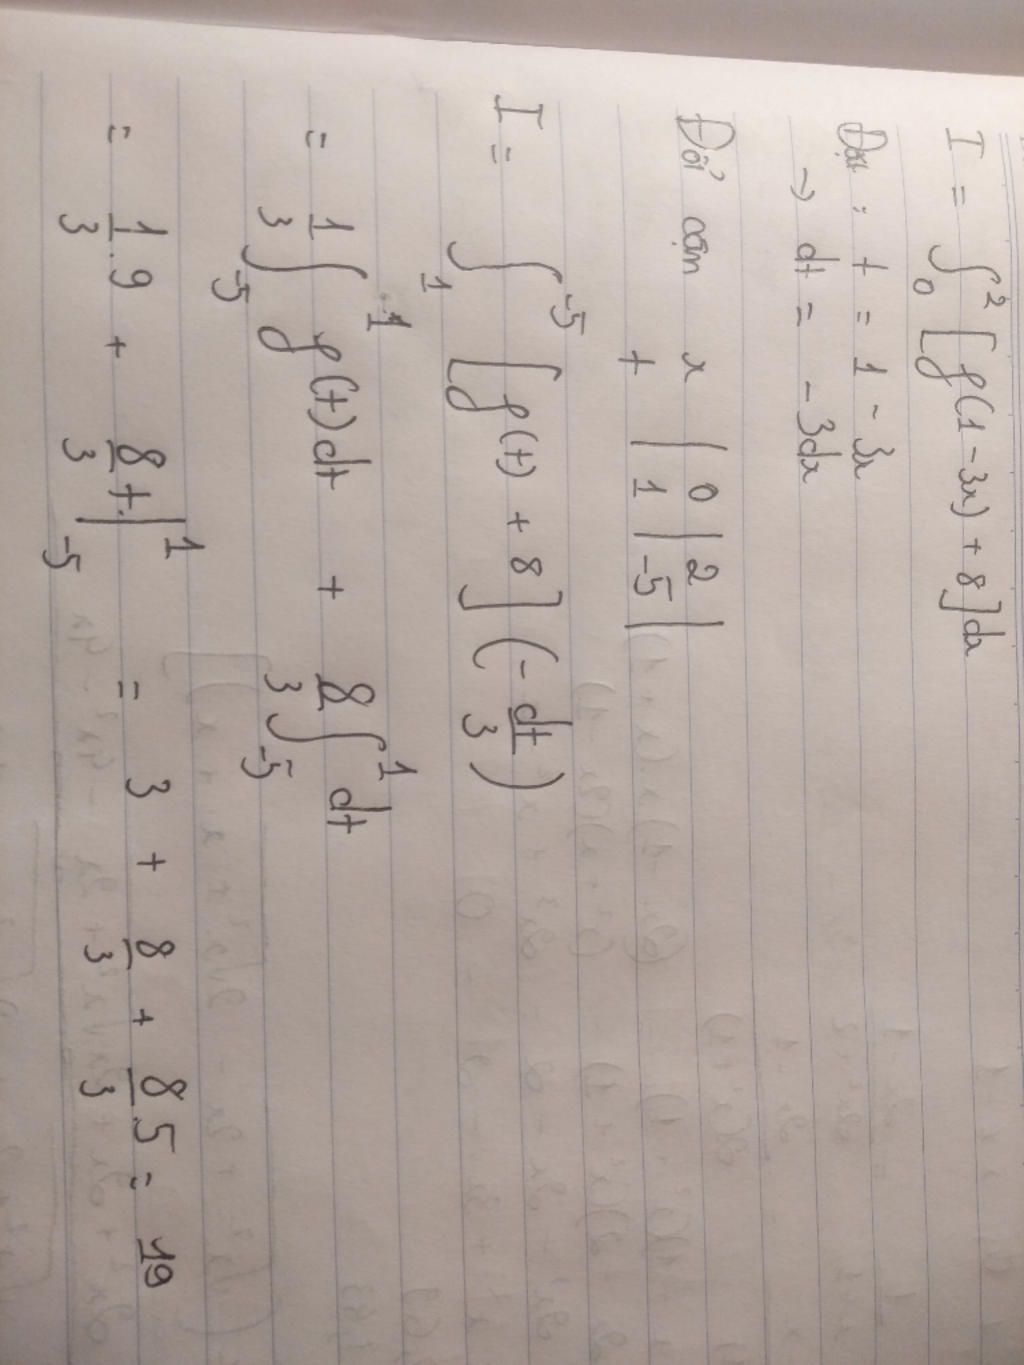 I = ∫₀² [f(1 - 3x) + 8] dx
Đặt : t = 1 - 3x
→ dt = - 3dx
Đổi cận x | 0 | 2 |
t | 1 | -5 |
I = ∫₁⁻⁵ [f(t) + 8] (- dt/3)
= 1/3 ∫₋₅¹ f(t) dt + 8/3 ∫₋₅¹ dt
= 1/3 . 9 + 8/3 t |₋₅¹ = 3 + 8/3 + 8/3 . 5 = 19